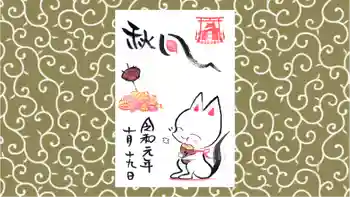 秋風
令和元年
十月十九日